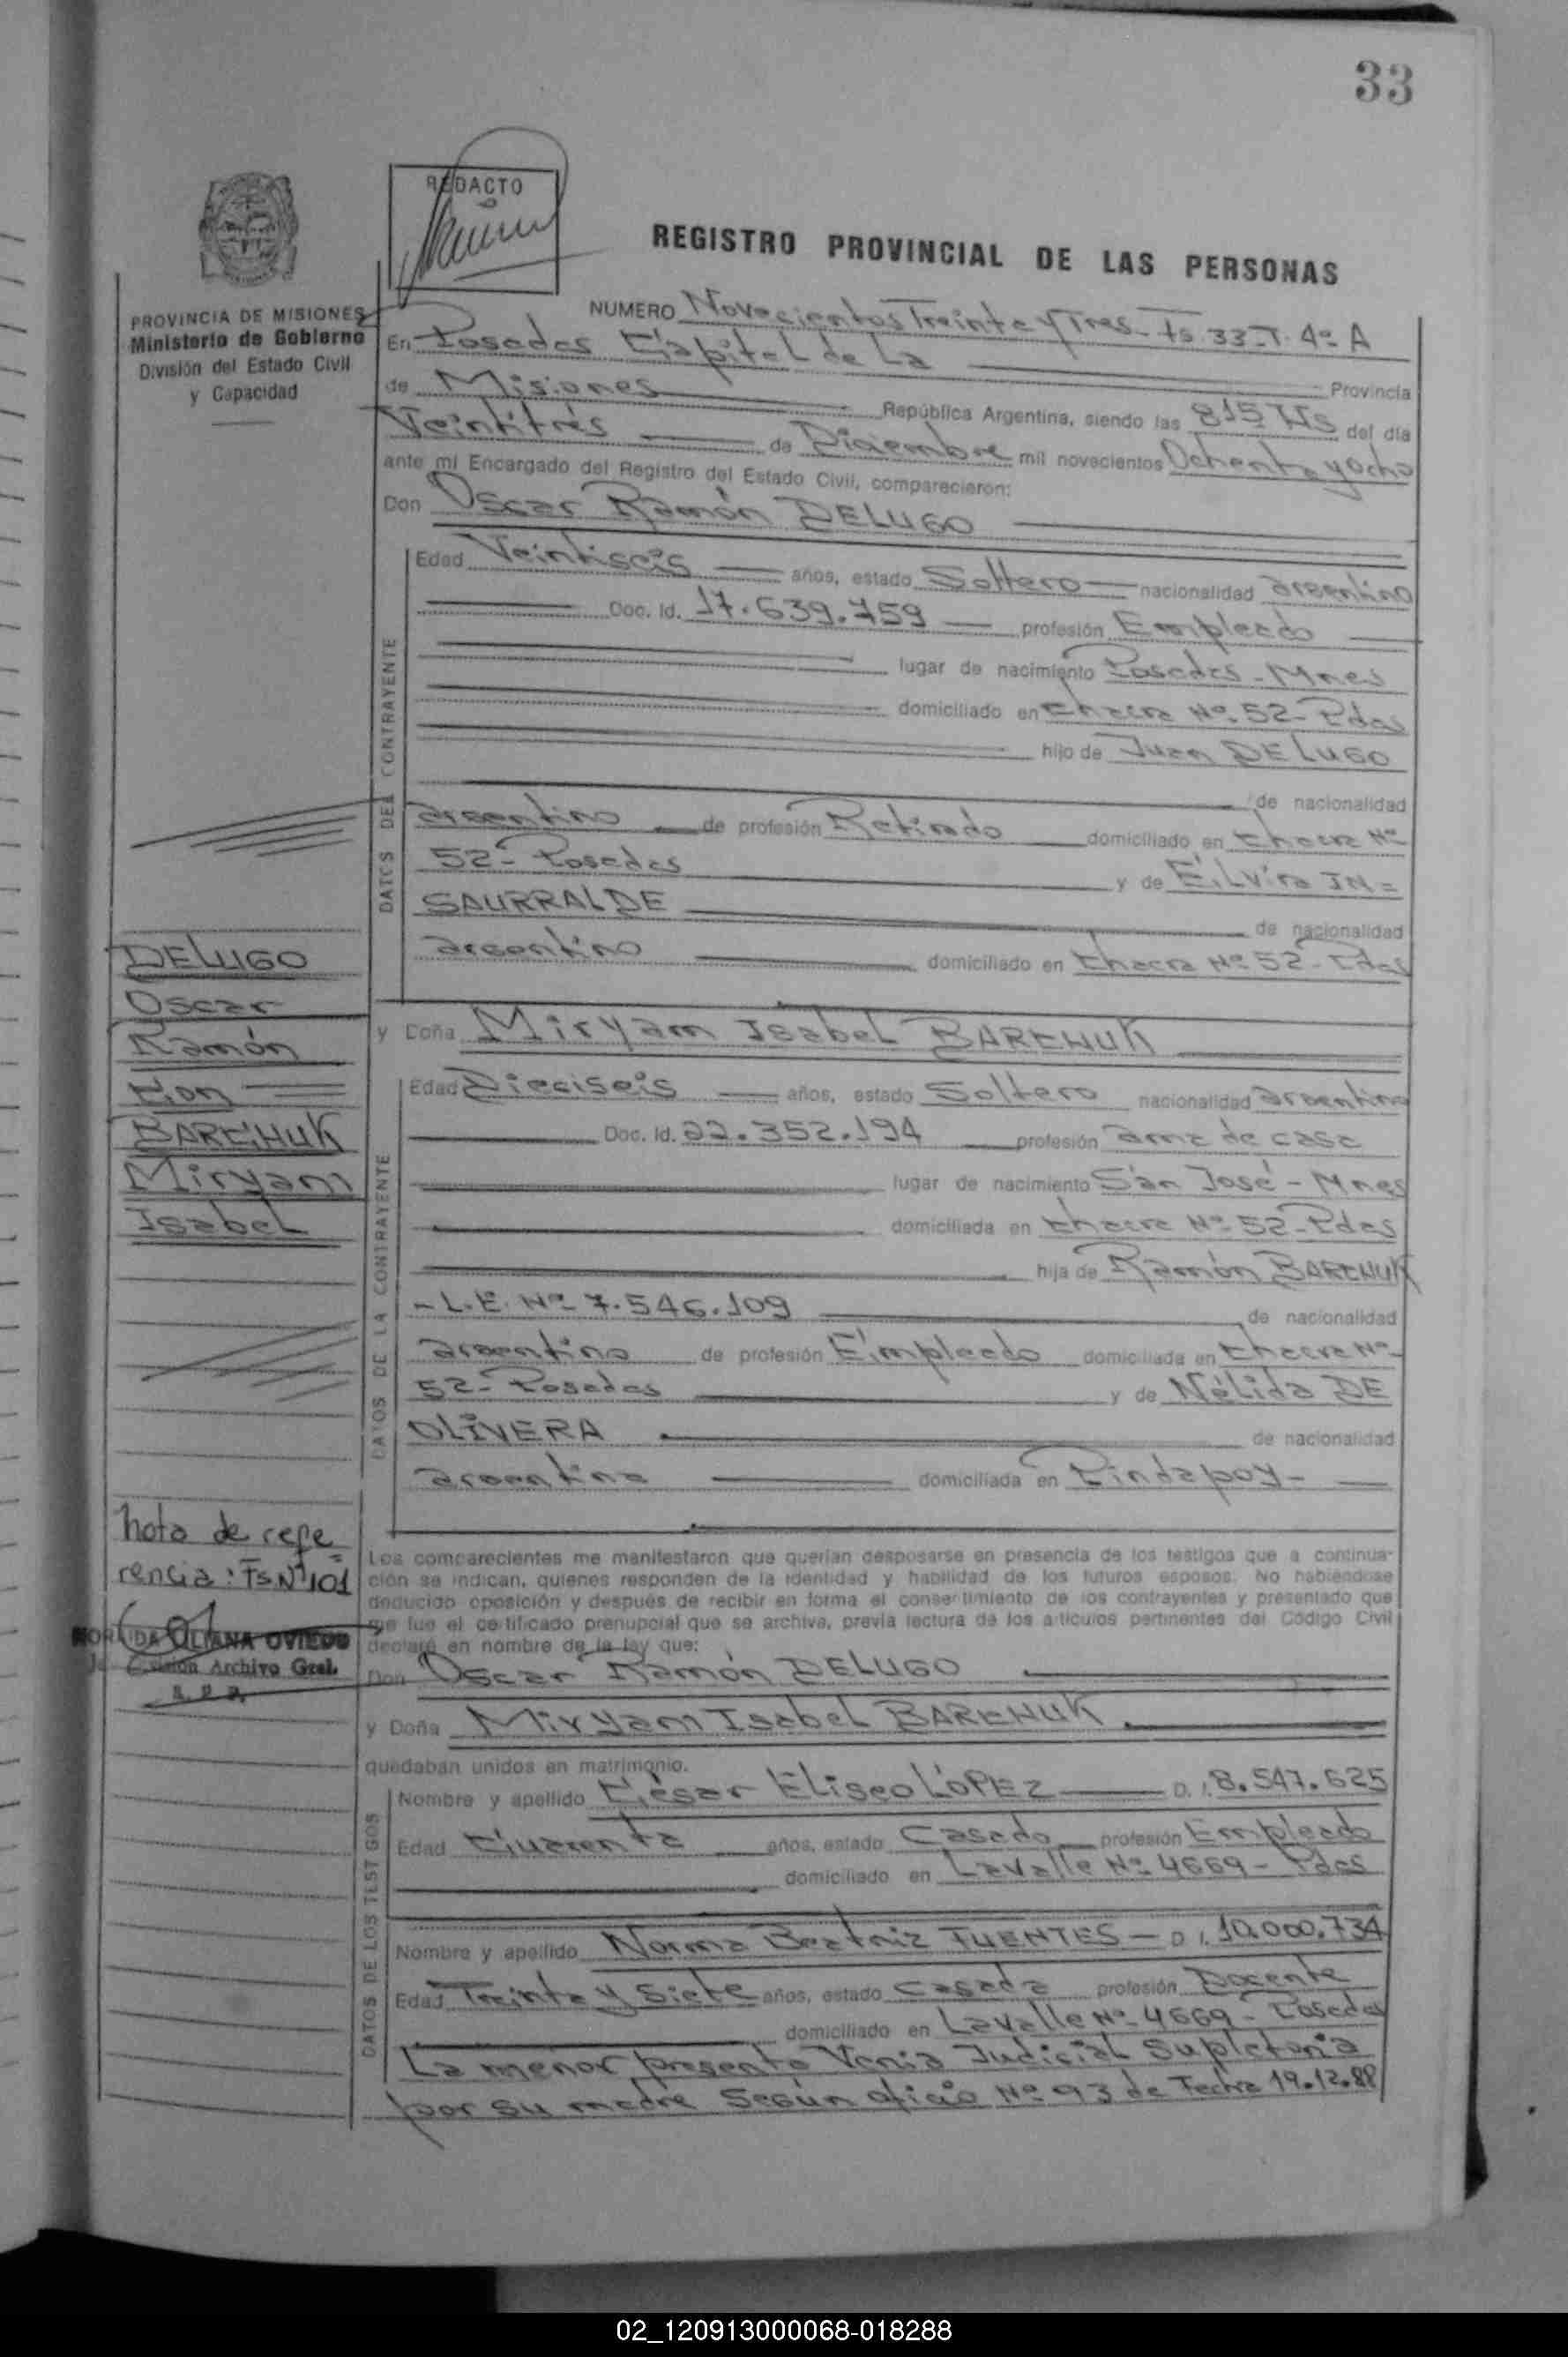 33
REDACTO
REGISTRO PROVINCIAL DE LAS PERSONAS
PROVINCIA DE MISIONES
Ministerio de Gobierno
División del Estado Civil
y Capacidad
NUMERO Novecientos Treinta y Tres - Fs. 33 - T. 4º A
En Posadas Capital de La Provincia
de Misiones República Argentina, siendo las 815 Hs del día
Veintitrés de Diciembre mil novecientos Ochenta y ocho
ante mí Encargado del Registro del Estado Civil, comparecieron:
Don Oscar Ramón DELUGO
DATOS DEL CONTRAYENTE
Edad Veintiseis años, estado Soltero nacionalidad argentino
Doc. Id. 17.639.759 profesión Empleado
lugar de nacimiento Posadas - Mnes
domiciliado en Chacra Nº 52 - Pdas
hijo de Juan DELUGO
de nacionalidad
argentino de profesión Retirado domiciliado en Chacra Nº
52 - Posadas y de Elvira IN=
SAURRALDE de nacionalidad
argentino domiciliado en Chacra Nº 52 - Pdas
DELUGO
Oscar
Ramón
Con
BARCHUK
Miryam
Isabel
y Doña Miryam Isabel BARCHUK
DATOS DE LA CONTRAYENTE
Edad Dieciseis años, estado Soltero nacionalidad argentino
Doc. Id. 22.352.194 profesión ama de casa
lugar de nacimiento San José - Mnes
domiciliada en Chacra Nº 52 - Pdas
hija de Ramón BARCHUK
- L.E. Nº 7.546.109 de nacionalidad
argentino de profesión Empleado domiciliada en Chacra Nº
52 - Posadas y de Nélida DE
OLIVERA de nacionalidad
argentina domiciliada en Pindapoy -
Nota de refe=
rencia: Fs Nº 101
OVIEDO
División Archivo Gral.
Los comparecientes me manifestaron que querían desposarse en presencia de los testigos que a continua-
ción se indican, quienes responden de la identidad y habilidad de los futuros esposos. No habiéndose
deducido oposición y después de recibir en forma el consentimiento de los contrayentes y presentado que
me fue el certificado prenupcial que se archiva, previa lectura de los artículos pertinentes del Código Civil
declaré en nombre de la ley que:
Don Oscar Ramón DELUGO
y Doña Miryam Isabel BARCHUK
quedaban unidos en matrimonio.
DATOS DE LOS TESTIGOS
Nombre y apellido César Eliseo LOPEZ D. I. 8.547.625
Edad Cuarenta años, estado Casado profesión Empleado
domiciliado en Lavalle Nº 4669 - Pdas
Nombre y apellido Norma Beatriz FUENTES - D. I. 10.000.734
Edad Treinta y Siete años, estado Casada profesión Docente
domiciliado en Lavalle Nº 4669 - Posadas
La menor presenta Venia Judicial Supletoria
por su madre Según oficio Nº 93 de Fecha 19.12.88
02_120913000068-018288